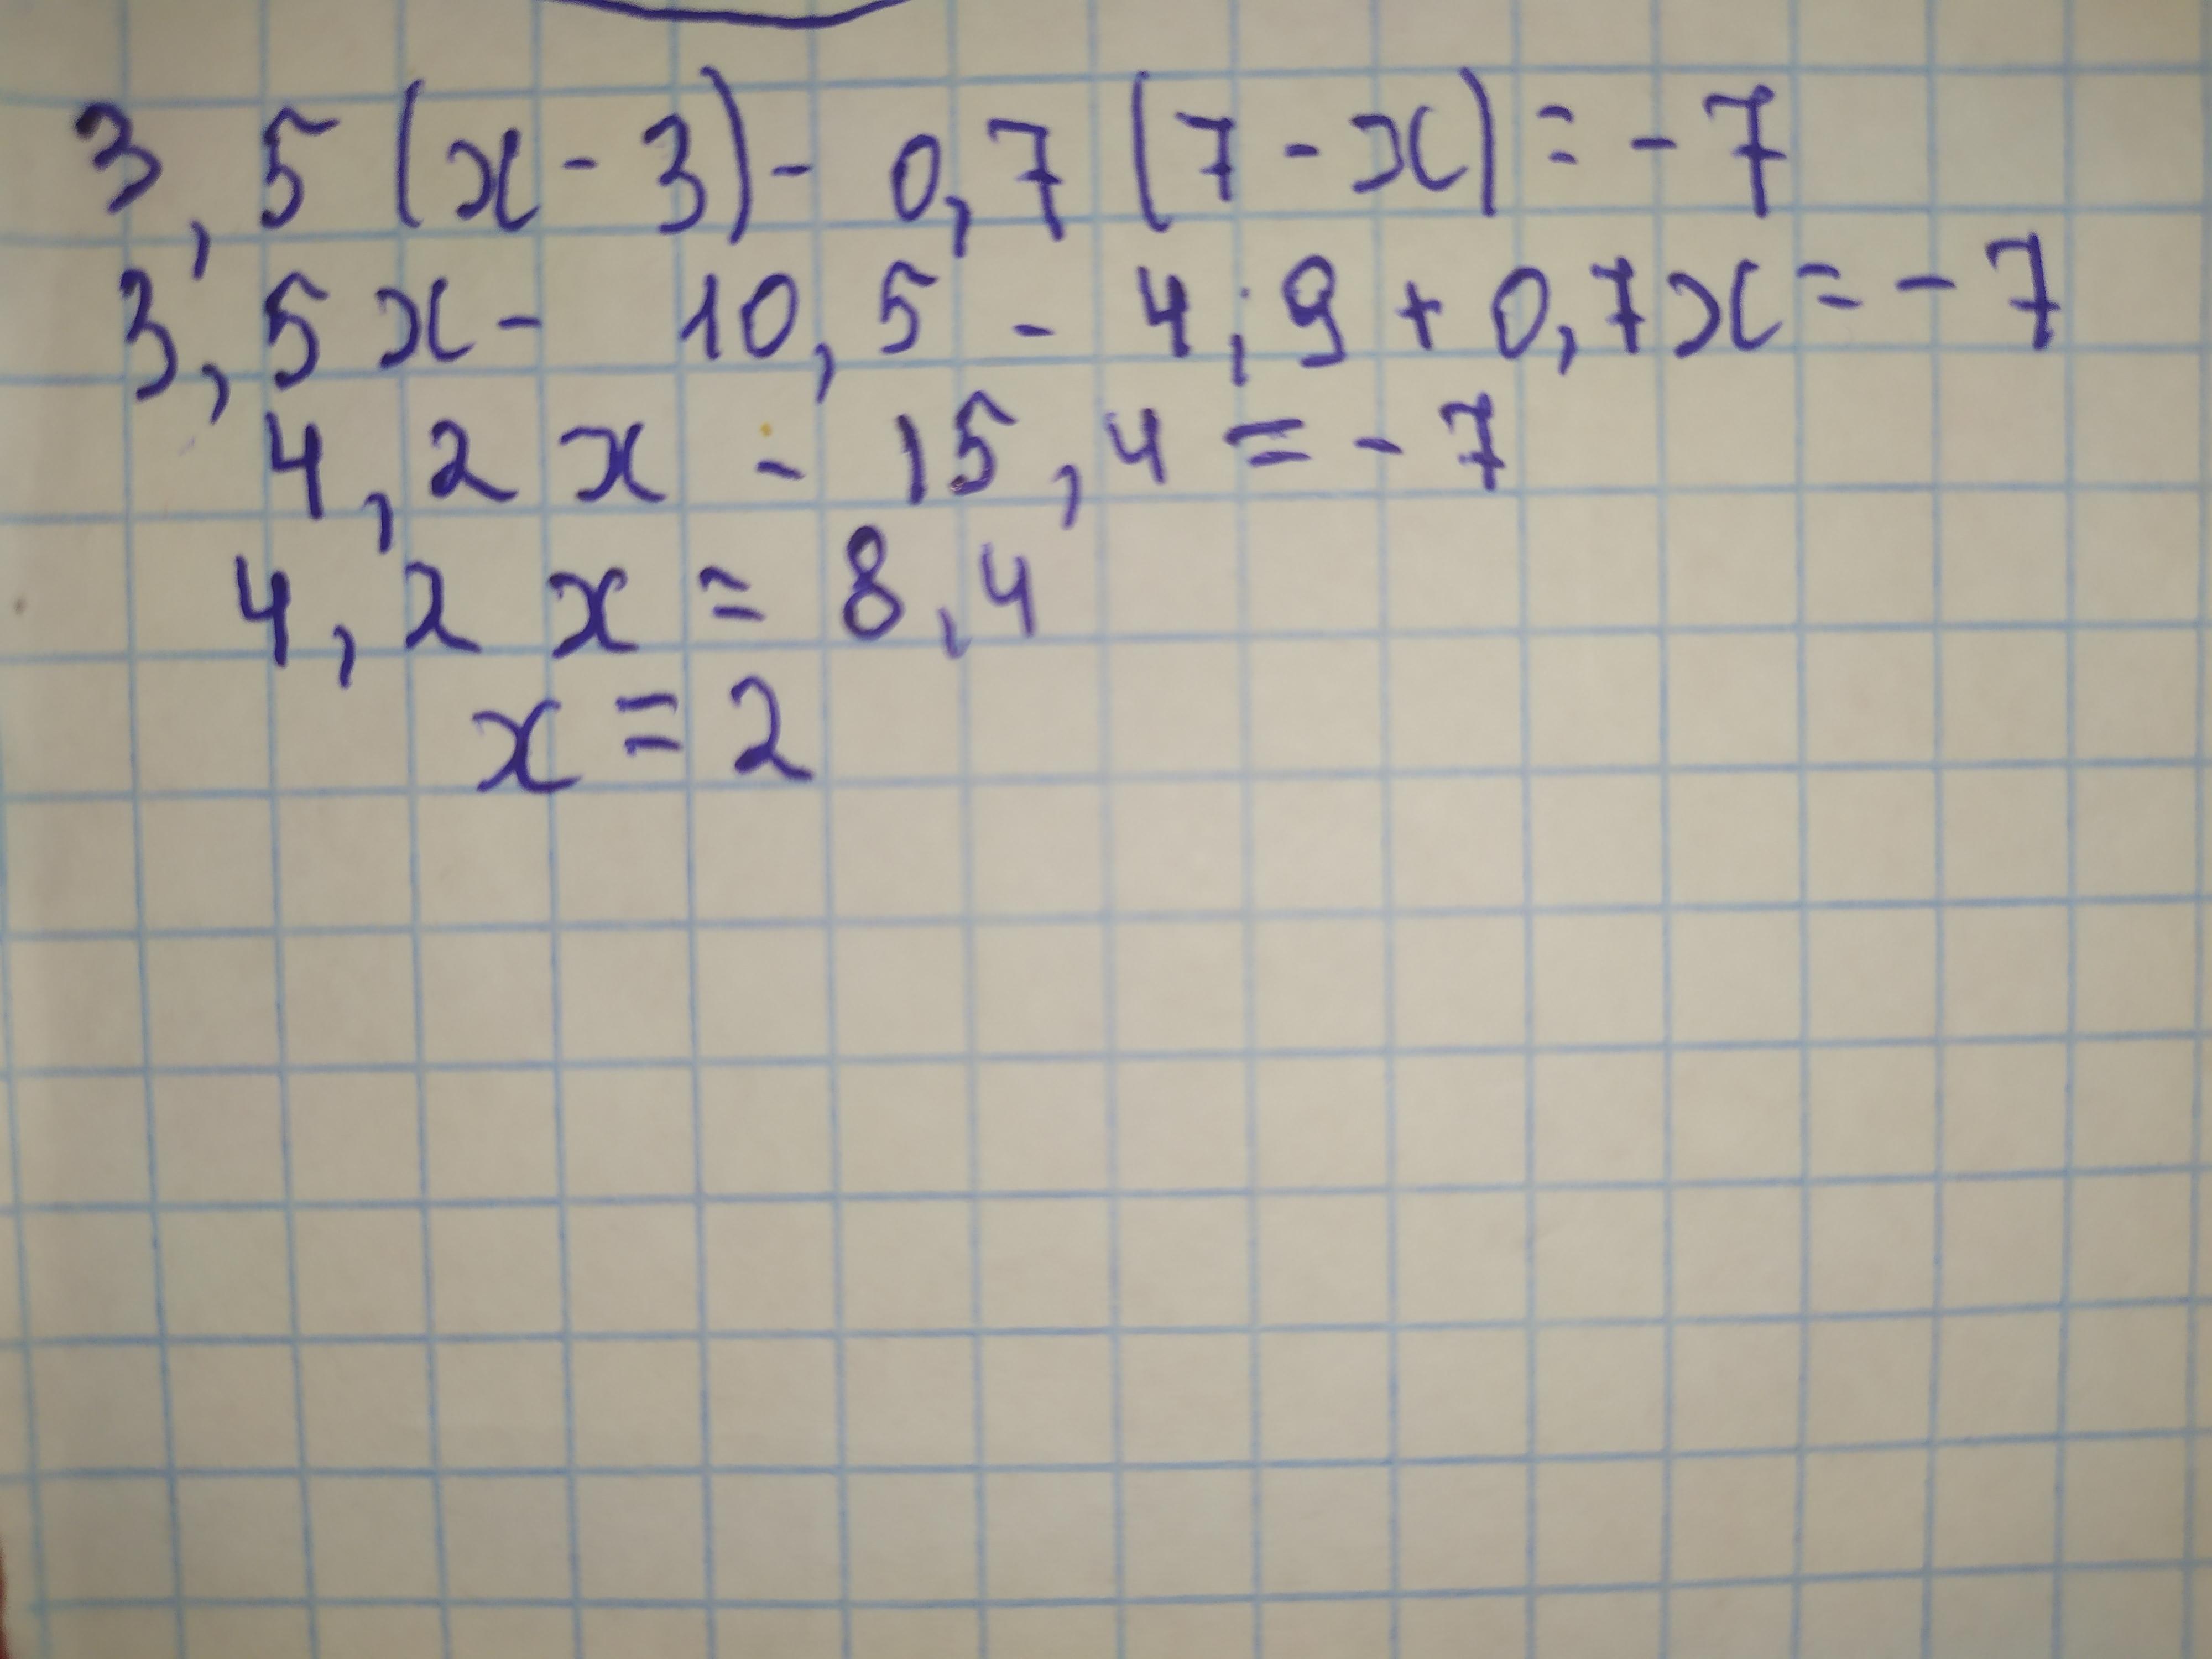 3,5(x-3)-0,7(7-x)=-7
3,5x-10,5-4,9+0,7x=-7
4,2x-15,4=-7
4,2x=8,4
x=2